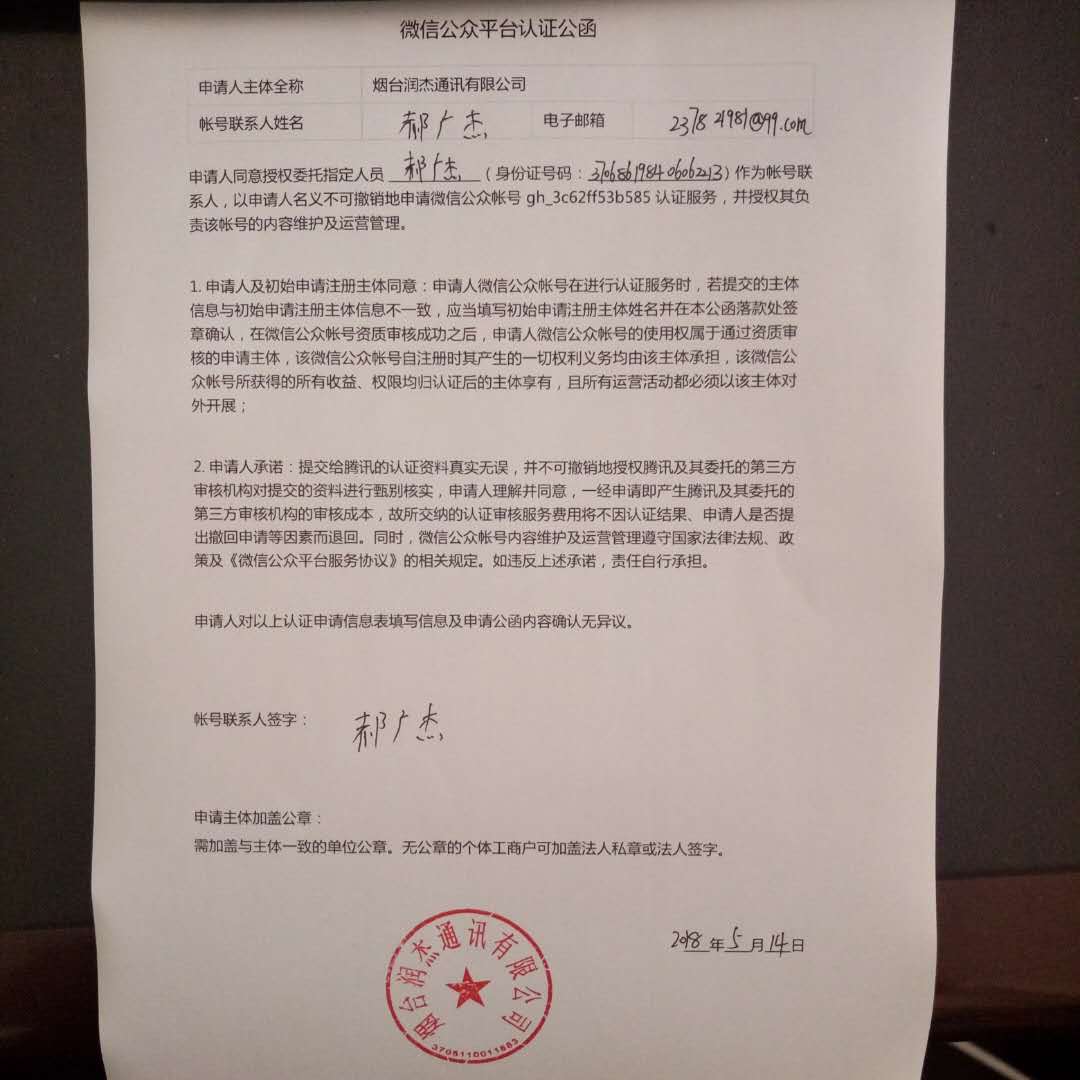 微信公众平台认证公函
申请人主体全称 烟台润杰通讯有限公司
帐号联系人姓名 郝广杰 电子邮箱 237821981@qq.com
申请人同意授权委托指定人员 郝广杰 （身份证号码：370686198406062213）作为帐号联
系人，以申请人名义不可撤销地申请微信公众帐号 gh_3c62ff53b585 认证服务，并授权其负
责该帐号的内容维护及运营管理。
1. 申请人及初始申请注册主体同意：申请人微信公众帐号在进行认证服务时，若提交的主体
信息与初始申请注册主体信息不一致，应当填写初始申请注册主体姓名并在本公函落款处签
章确认，在微信公众帐号资质审核成功之后，申请人微信公众帐号的使用权属于通过资质审
核的申请主体，该微信公众帐号自注册时其产生的一切权利义务均由该主体承担，该微信公
众帐号所获得的所有收益、权限均归认证后的主体享有，且所有运营活动都必须以该主体对
外开展；
2. 申请人承诺：提交给腾讯的认证资料真实无误，并不可撤销地授权腾讯及其委托的第三方
审核机构对提交的资料进行甄别核实，申请人理解并同意，一经申请即产生腾讯及其委托的
第三方审核机构的审核成本，故所交纳的认证审核服务费用将不因认证结果、申请人是否提
出撤回申请等因素而退回。同时，微信公众帐号内容维护及运营管理遵守国家法律法规、政
策及《微信公众平台服务协议》的相关规定。如违反上述承诺，责任自行承担。
申请人对以上认证申请信息表填写信息及申请公函内容确认无异议。
帐号联系人签字： 郝广杰
申请主体加盖公章：
需加盖与主体一致的单位公章。无公章的个体工商户可加盖法人私章或法人签字。
烟台润杰通讯有限公司
2018 年 5 月 14 日